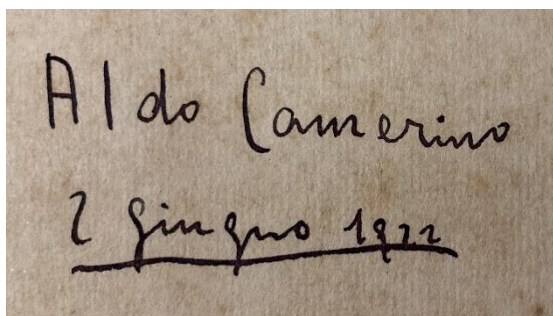 Aldo Camerino
2 giugno 1922